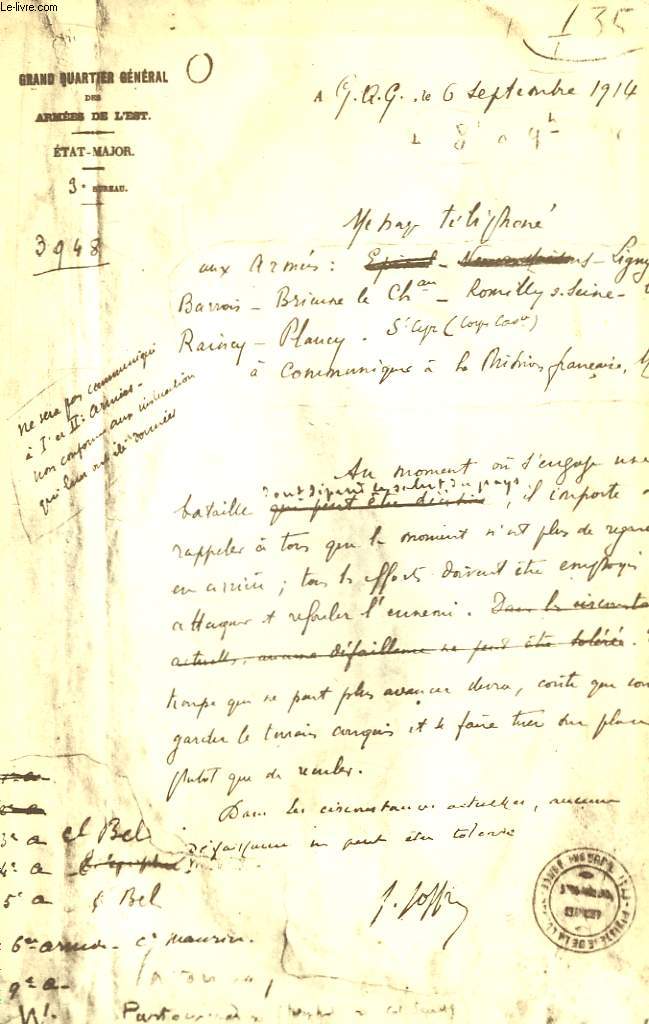 Le-livre.com
I 35
GRAND QUARTIER GÉNÉRAL
DES
ARMÉES DE L'EST.
ÉTAT-MAJOR.
3e BUREAU.
3948
A G.Q.G. le 6 septembre 1914
Message téléphoné
aux Armées : Epinal - - Ligny
Barrois - Brienne le Chau - Romilly s. Seine -
Raincy - Plancy. St Cyr
à communiquer à la Mission française,
ne sera pas communiqué
à Ie et IIe Armées -
non conforme aux instructions
qui leur ont été données
Au moment où s'engage une
dont dépend le salut du pays
bataille qui peut être décisive, il importe
rappeler à tous que le moment n'est plus de regar
en arrière ; tous les efforts doivent être employés
attaquer et refouler l'ennemi. Dans les circonsta
actuelles, aucune défaillance ne peut être tolérée.
troupe qui ne peut plus avancer devra, coûte que coû
garder le terrain conquis et se faire tuer sur place
plutôt que de reculer.
Dans les circonstances actuelles, aucune
défaillance ne peut être tolérée
J. Joffre
3e a cl Bel
4e a
5e a Bel
6e armée - ce Maurin.
9e a